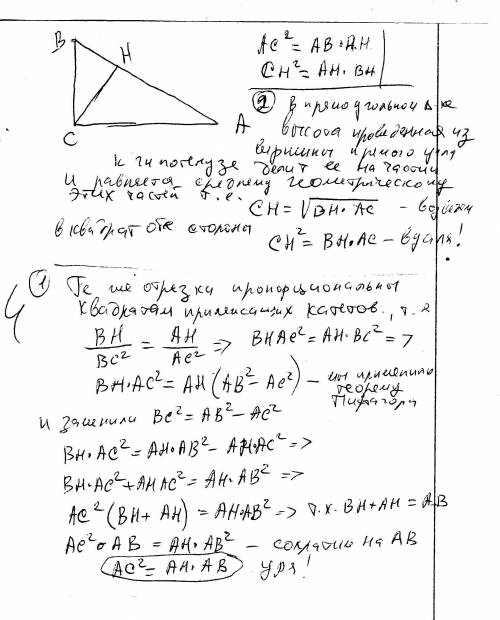 B
H
C
A
AC² = AB · AH
CH² = AH · BH
② В прямоугольном Δ-ке
высота проведенная из
вершины прямого угла
к гипотенузе делит ее на части
и равняется среднему геометрическому
этих частей т.е.
CH = √BH · AC – возведем
в квадрат обе стороны
CH² = BH · AC – вуаля!
① Те же отрезки пропорциональны
квадратам прилежащих катетов, т.е
BH/BC² = AH/AC² => BHAC² = AH · BC² =>
BH · AC² = AH (AB² – AC²) – мы применили
теорему
Пифагора
и заменили BC² = AB² – AC²
BH · AC² = AH · AB² – AH · AC² =>
BH · AC² + AHAC² = AH · AB² =>
AC² (BH + AH) = AH · AB² => т.к. BH + AH = AB
AC² · AB = AH · AB² – сократим на AB
AC² = AH · AB ура!